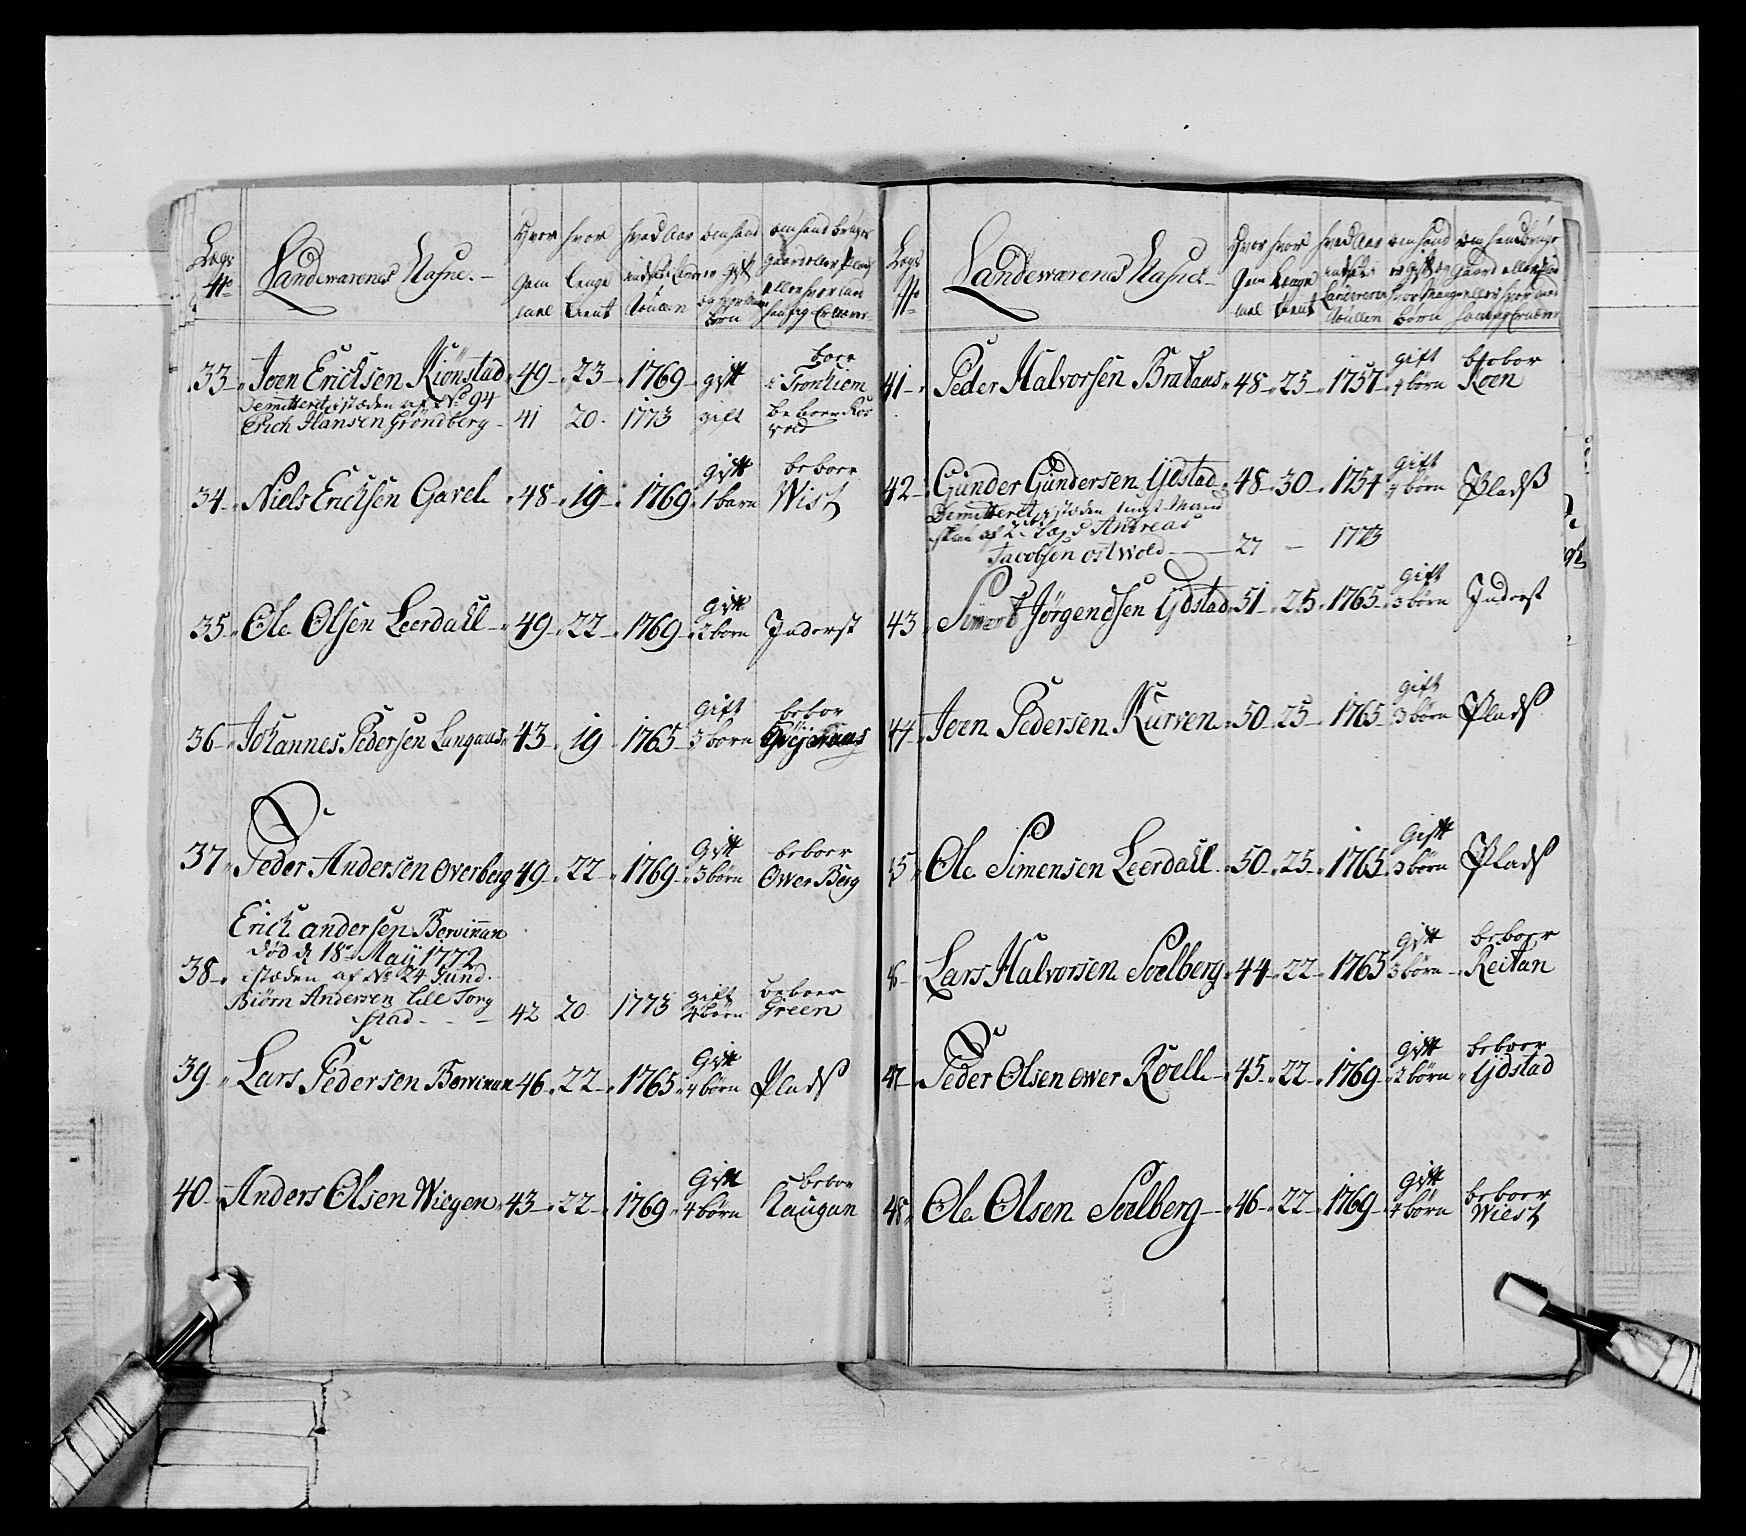 Lægs No Landewærnes Nafne.
Hvor Gamel
hvor lenge tient
hvad Aar
om hand er gift
børn
om hand bruger gaard eller Plads
boer
33 Joen Ericksen Kiönstad 49 23 1769 gift i Tronhiem
Demitteret i stæden af No 94
Erich Hansen Gröndberg 41 20. 1773 gift beboer
34. Niels Ericksen Garel 48 19 1769 gift 1 barn beboer Wist
35. Ole Olsen Leerdall 49 22 1769 gift 2 børn Inderst
36 Johannes Pedersen Langaas 43 19 1765 gift 3 børn bebor
37 Peder Andersen Overberg 49 22 1769 Gift 3 børn beboer Ower Berg
Erich andersen Borvinan
død d 18de May 1772
38. i stæden af No 24 Sund.
Biörn Andersen Lill Torg
stad 42 20. 1773 gift 4 børn beboer Green
39. Lars Pedersen Borvinan 46 22 1765 Gift 4 børn Plads
40. Anders Olsen Wiegen 43 22 1769 Gift 4 børn bebor Haugan
Lægs No Landewærnes Nafne
Hvor Gamel
hvor lenge tient
hvad Aar
om hand er gift og hvor mange børn
om hand bruger gaard eller Plads
41 Peder Halvorsen Brataas 48 25 1757 gift 4 børn bebor Roen
42 Gunder Gundersen Ydstad 48 30 1754 gift 4 børn Plads
Demitteret i stæden
af Andreas
Jacobsen ostwold 27 1773
43 Siwert Jørgendsen Ydstad 51 25 1765 gift 3 børn Inderst
44 Joen Pedersen Kurven 50 25 1765 gift 3 børn Plads
45 Ole Simensen Leerdall 50 25 1765 Gift 3 børn Plads
Lars Halvorsen Soelberg 44 22 1765 Gift 3 børn beboer Reitan
47 Peder Olsen ower Roell 45 22 1769 Gift 2 børn beboer Ydstad
48 Ole Olsen Soelberg 46 22 1769 Gift 4 børn beboer Wiest